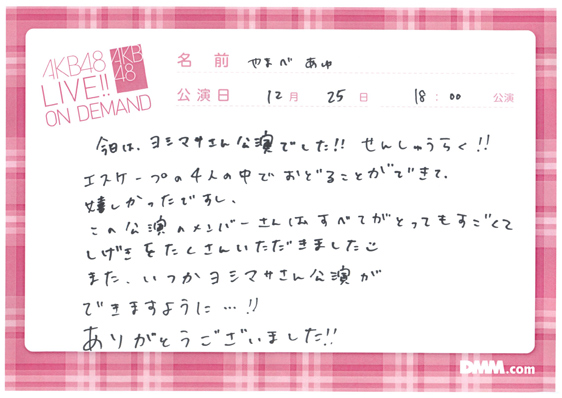 AKB48
LIVE!!
ON DEMAND
AKB
48
名前 やまべ あゆ
公演日 12月 25日 18:00 公演
今日は、ヨシマサさん公演でした!! せんしゅうらく!!
エスケープの4人の中でおどることができて、
嬉しかったですし、
この公演のメンバーさんはすべてがとってもすごくて
しげきをたくさんいただきました
また、いつかヨシマサさん公演が
できますように…!!
ありがとうございました!!
DMM.com